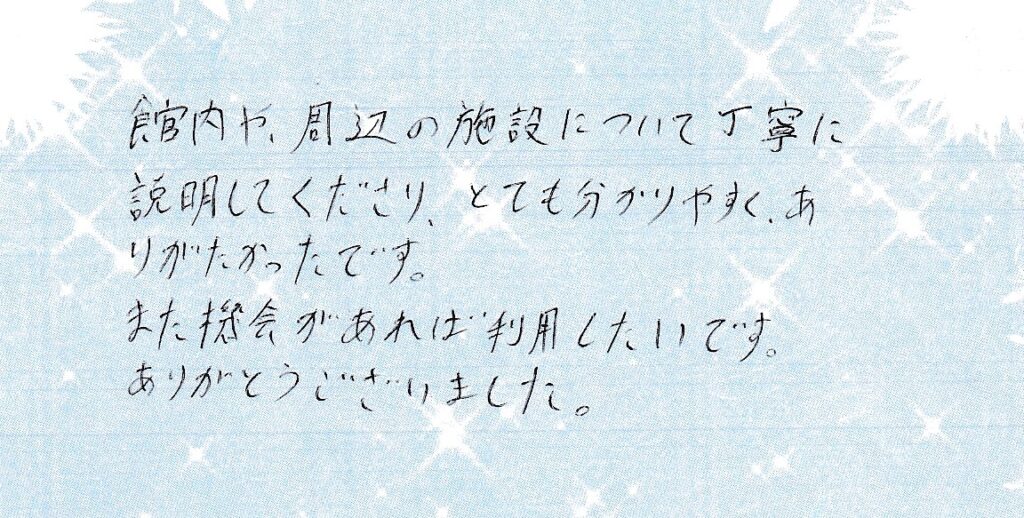 館内や、周辺の施設について丁寧に
説明してくださり、とても分かりやすく、あ
りがたかったです。
また機会があれば利用したいです。
ありがとうございました。